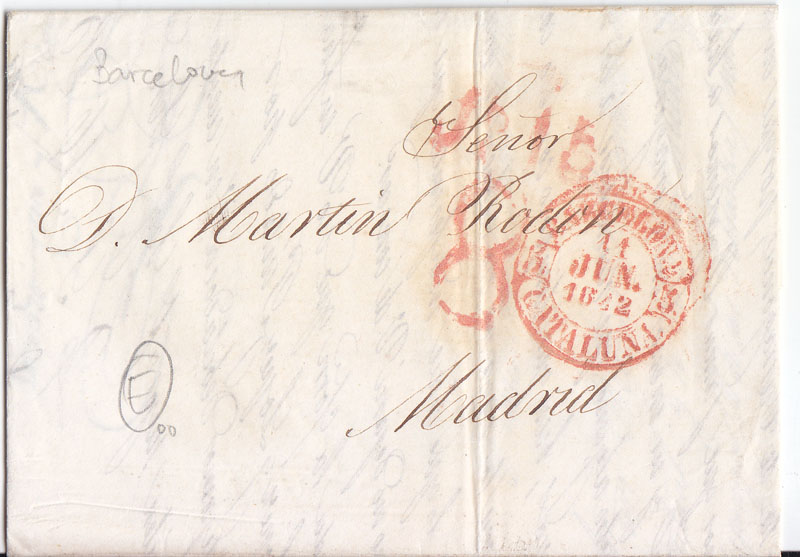 Barcelona
Señor
D. Martin Rodon
BARCELONA
11
JUN.
1842
CATALUÑA
Madrid
E